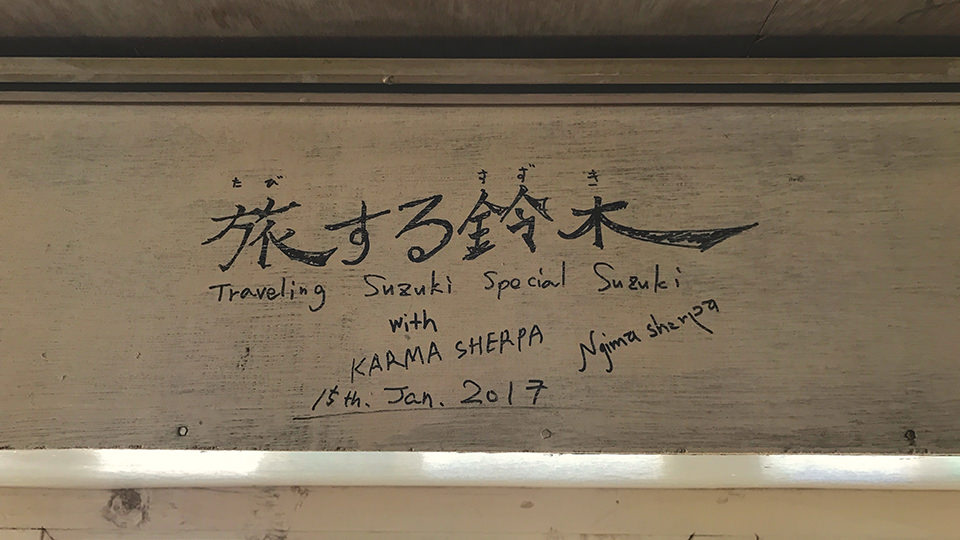 たび すずき
旅する鈴木
Traveling Suzuki Special Suzuki
with
KARMA SHERPA Ngima sherpa
15th. Jan. 2017